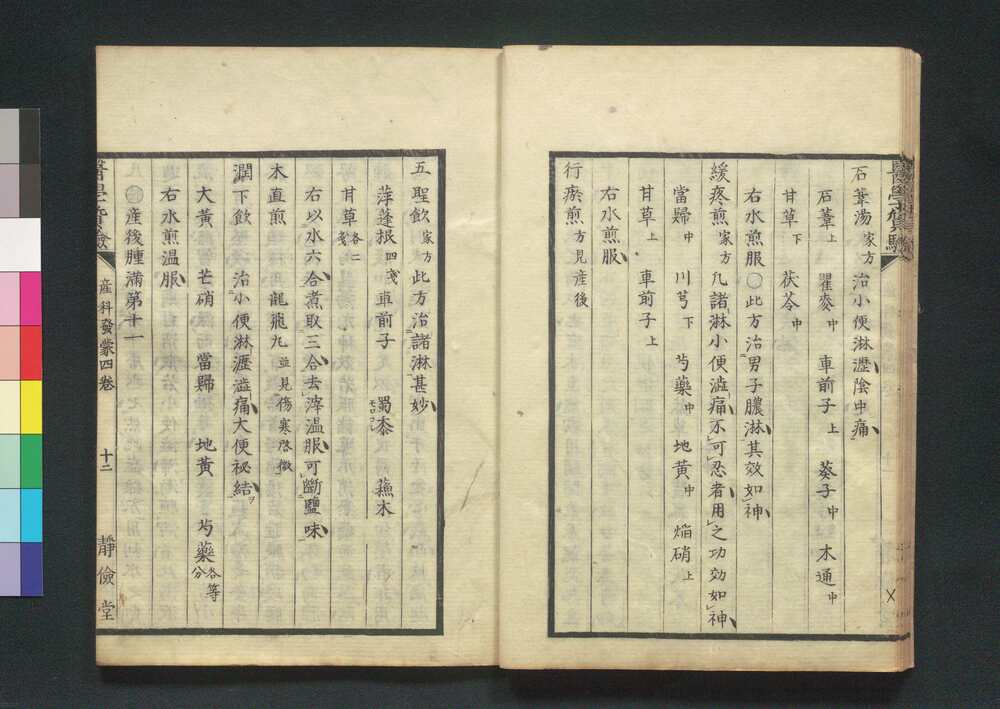 石葦湯家方 治小便淋瀝陰中痛
石葦上 瞿麥中 車前子上 葵子中 木通中
甘草下 茯苓中
右水煎服〇此方治男子膿淋其效如神
緩疼煎家方 凡諸淋小便澁痛不可忍者用之功効如神
當歸中 川芎下 芍藥中 地黃中 焔硝上
甘草上 車前子上
右水煎服
行瘀煎方見産後
五聖飲家方 此方治諸淋甚妙
萍蓬根四戔 車前子 蜀黍モロコシ 蘓木
甘草各二戔
右以水六合煮取三合去滓温服可斷鹽味
木直煎 龍飛丸並見傷寒啓微
潤下飲 治小便淋瀝澁痛大便祕結ヲ
大黃 芒硝 當歸 地黃 芍藥各等分
右水煎温服
産後腫滿第十一
産科發蒙四卷 十二 靜儉堂